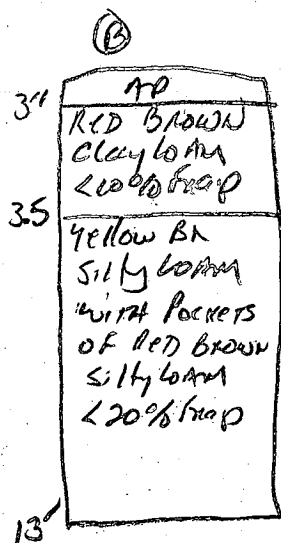 B
AP
3"
RED BROWN
Clay LOAM
<20% frap
3.5
Yellow BR
Silty LOAM
WITH POCKETS
OF RED BROWN
Silty LOAM
<20% frap
13'